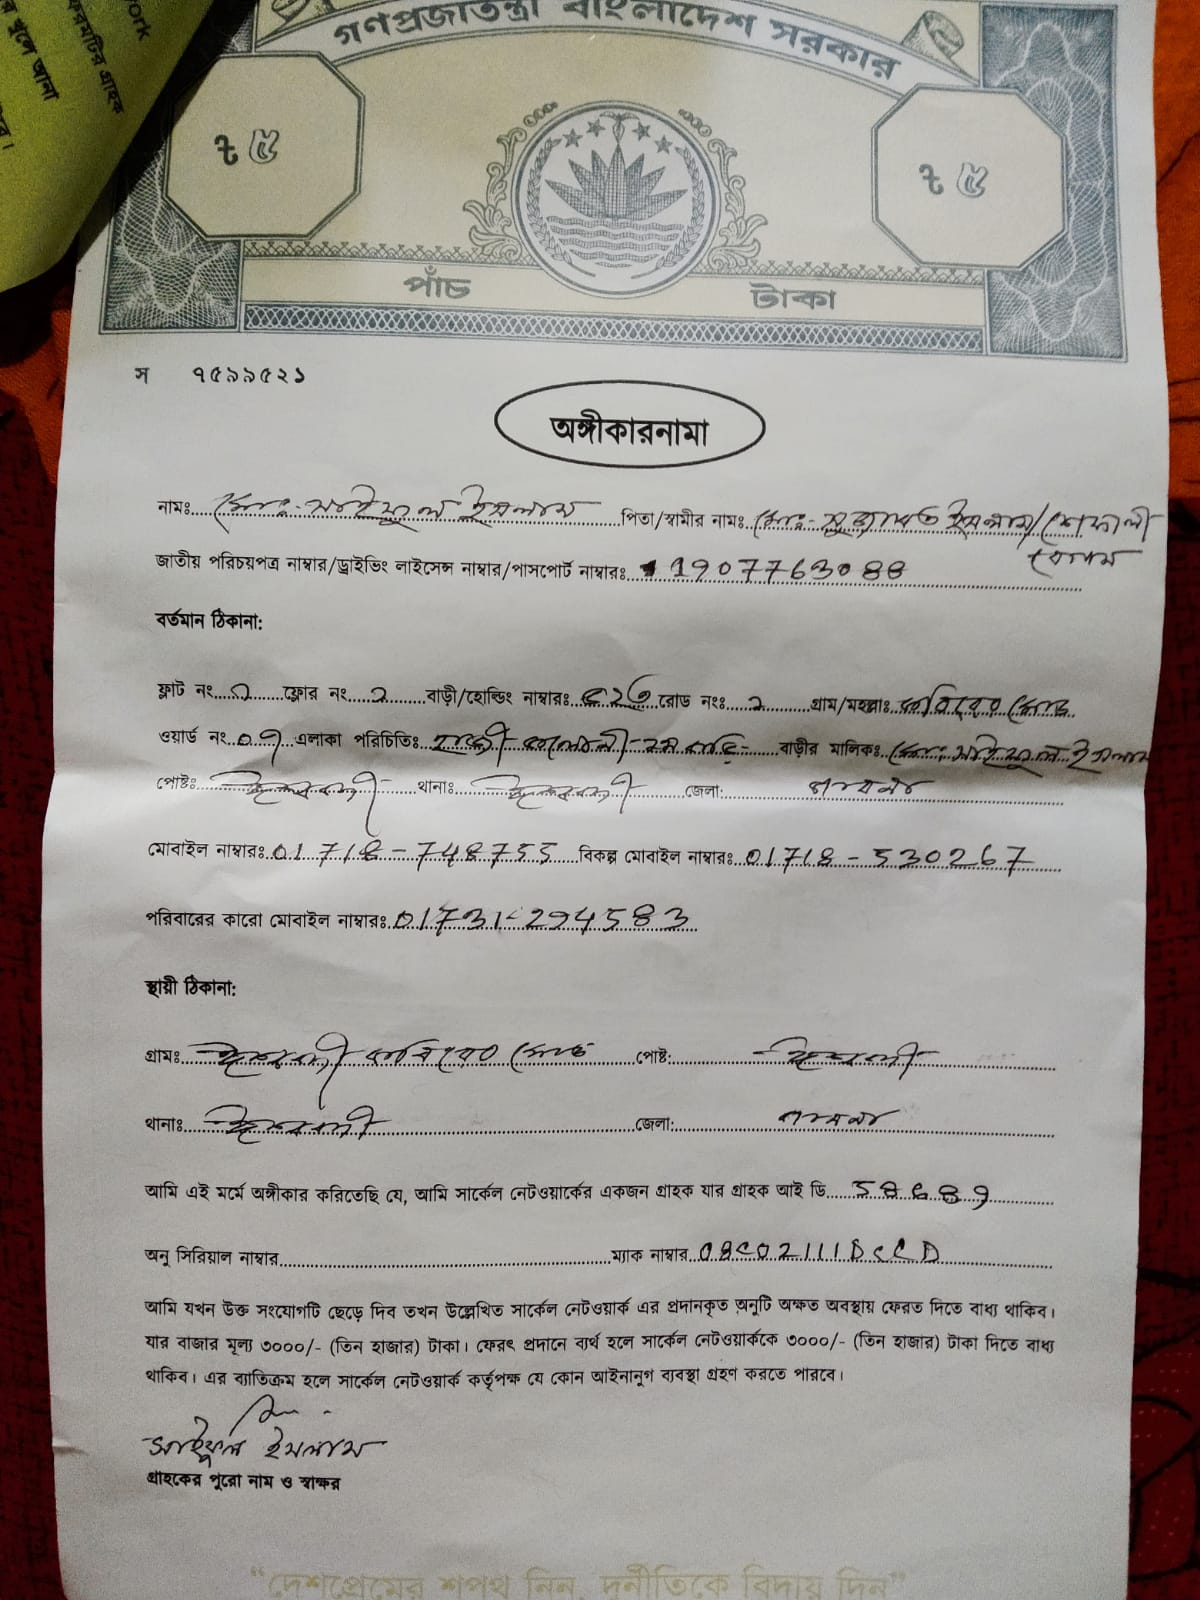 গণপ্রজাতন্ত্রী বাংলাদেশ সরকার
৳ ৫
৳ ৫
পাঁচ টাকা
স ৭৫৯৯৫২১
অঙ্গীকারনামা
নামঃ মোঃ-সাইফুল ইসলাম পিতা/স্বামীর নামঃ মোঃ- ইসলাম/শেফালী
বেগম
জাতীয় পরিচয়পত্র নাম্বার/ড্রাইভিং লাইসেন্স নাম্বার/পাসপোর্ট নাম্বারঃ 1907763088
বর্তমান ঠিকানা:
ফ্লাট নং ফ্লোর নং ২ বাড়ী/হোল্ডিং নাম্বারঃ রোড নংঃ ২ গ্রাম/মহল্লাঃ মোড়
ওয়ার্ড নং এলাকা পরিচিতিঃ বাড়ীর মালিকঃ মোঃ সাইফুল ইসলাম
পোষ্টঃ ঈশ্বরদী থানাঃ ঈশ্বরদী জেলা: পাবনা
মোবাইল নাম্বারঃ 01718-748755 বিকল্প মোবাইল নাম্বারঃ 01718-530267
পরিবারের কারো মোবাইল নাম্বারঃ 01731-294583
স্থায়ী ঠিকানা:
গ্রামঃ ঈশ্বরদী মোড় পোষ্ট: ঈশ্বরদী
থানাঃ ঈশ্বরদী জেলা: পাবনা
আমি এই মর্মে অঙ্গীকার করিতেছি যে, আমি সার্কেল নেটওয়ার্কের একজন গ্রাহক যার গ্রাহক আই ডি
অনু সিরিয়াল নাম্বার ম্যাক নাম্বার
আমি যখন উক্ত সংযোগটি ছেড়ে দিব তখন উল্লেখিত সার্কেল নেটওয়ার্ক এর প্রদানকৃত অনুটি অক্ষত অবস্থায় ফেরত দিতে বাধ্য থাকিব।
যার বাজার মূল্য ৩০০০/- (তিন হাজার) টাকা। ফেরৎ প্রদানে ব্যর্থ হলে সার্কেল নেটওয়ার্ককে ৩০০০/- (তিন হাজার) টাকা দিতে বাধ্য
থাকিব। এর ব্যাতিক্রম হলে সার্কেল নেটওয়ার্ক কর্তৃপক্ষ যে কোন আইনানুগ ব্যবস্থা গ্রহণ করতে পারবে।
সাইফুল ইসলাম
গ্রাহকের পুরো নাম ও স্বাক্ষর
"দেশপ্রেমের শপথ নিন, দুর্নীতিকে বিদায় দিন"